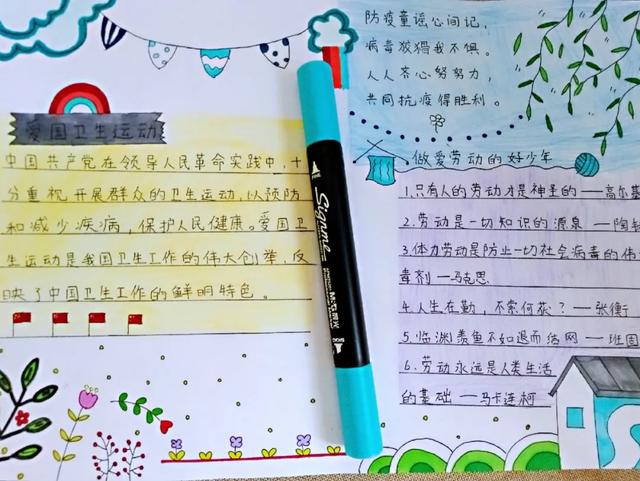 爱国卫生运动
中国共产党在领导人民革命实践中,十
分重视开展群众的卫生运动,以预防
和减少疾病,保护人民健康。爱国卫
生运动是我国卫生工作的伟大创举,反
映了中国卫生工作的鲜明特色。
Signme
防疫童谣心间记,
病毒狡猾我不惧。
人人齐心努努力,
共同抗疫得胜利。
做爱劳动的好少年
1.只有人的劳动才是神圣的——高尔基
2.劳动是一切知识的源泉——陶
3.体力劳动是防止一切社会病毒的伟
毒剂—马克思
4.人生在勤,不索何获?—张衡
5.临渊羡鱼不如退而结网—班固
6.劳动永远是人类生活
的基础—马卡连柯